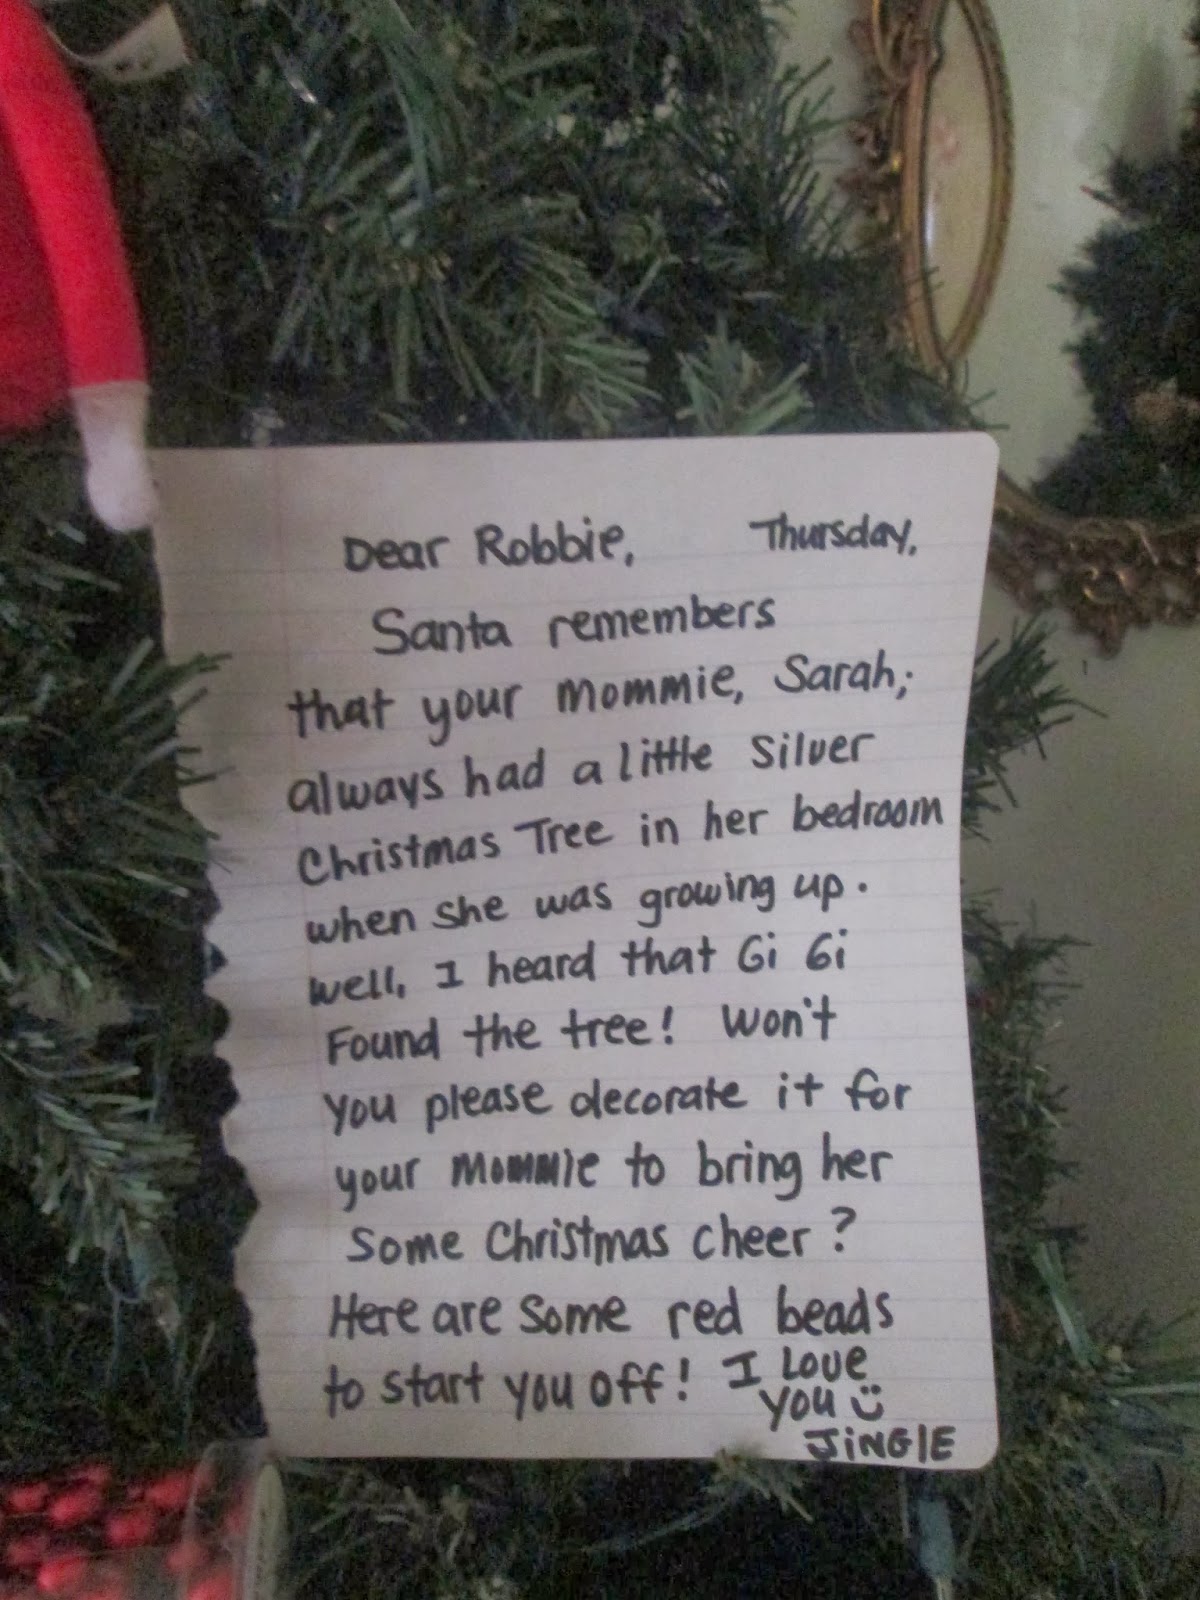 Dear Robbie, Thursday,
Santa remembers
that your Mommie, Sarah;
always had a little Silver
Christmas Tree in her bedroom
when she was growing up.
Well, I heard that Gi Gi
Found the tree! Won't
you please decorate it for
your Mommie to bring her
Some Christmas cheer?
Here are Some red beads
to start you off! I Love
You ü
JiNGlE